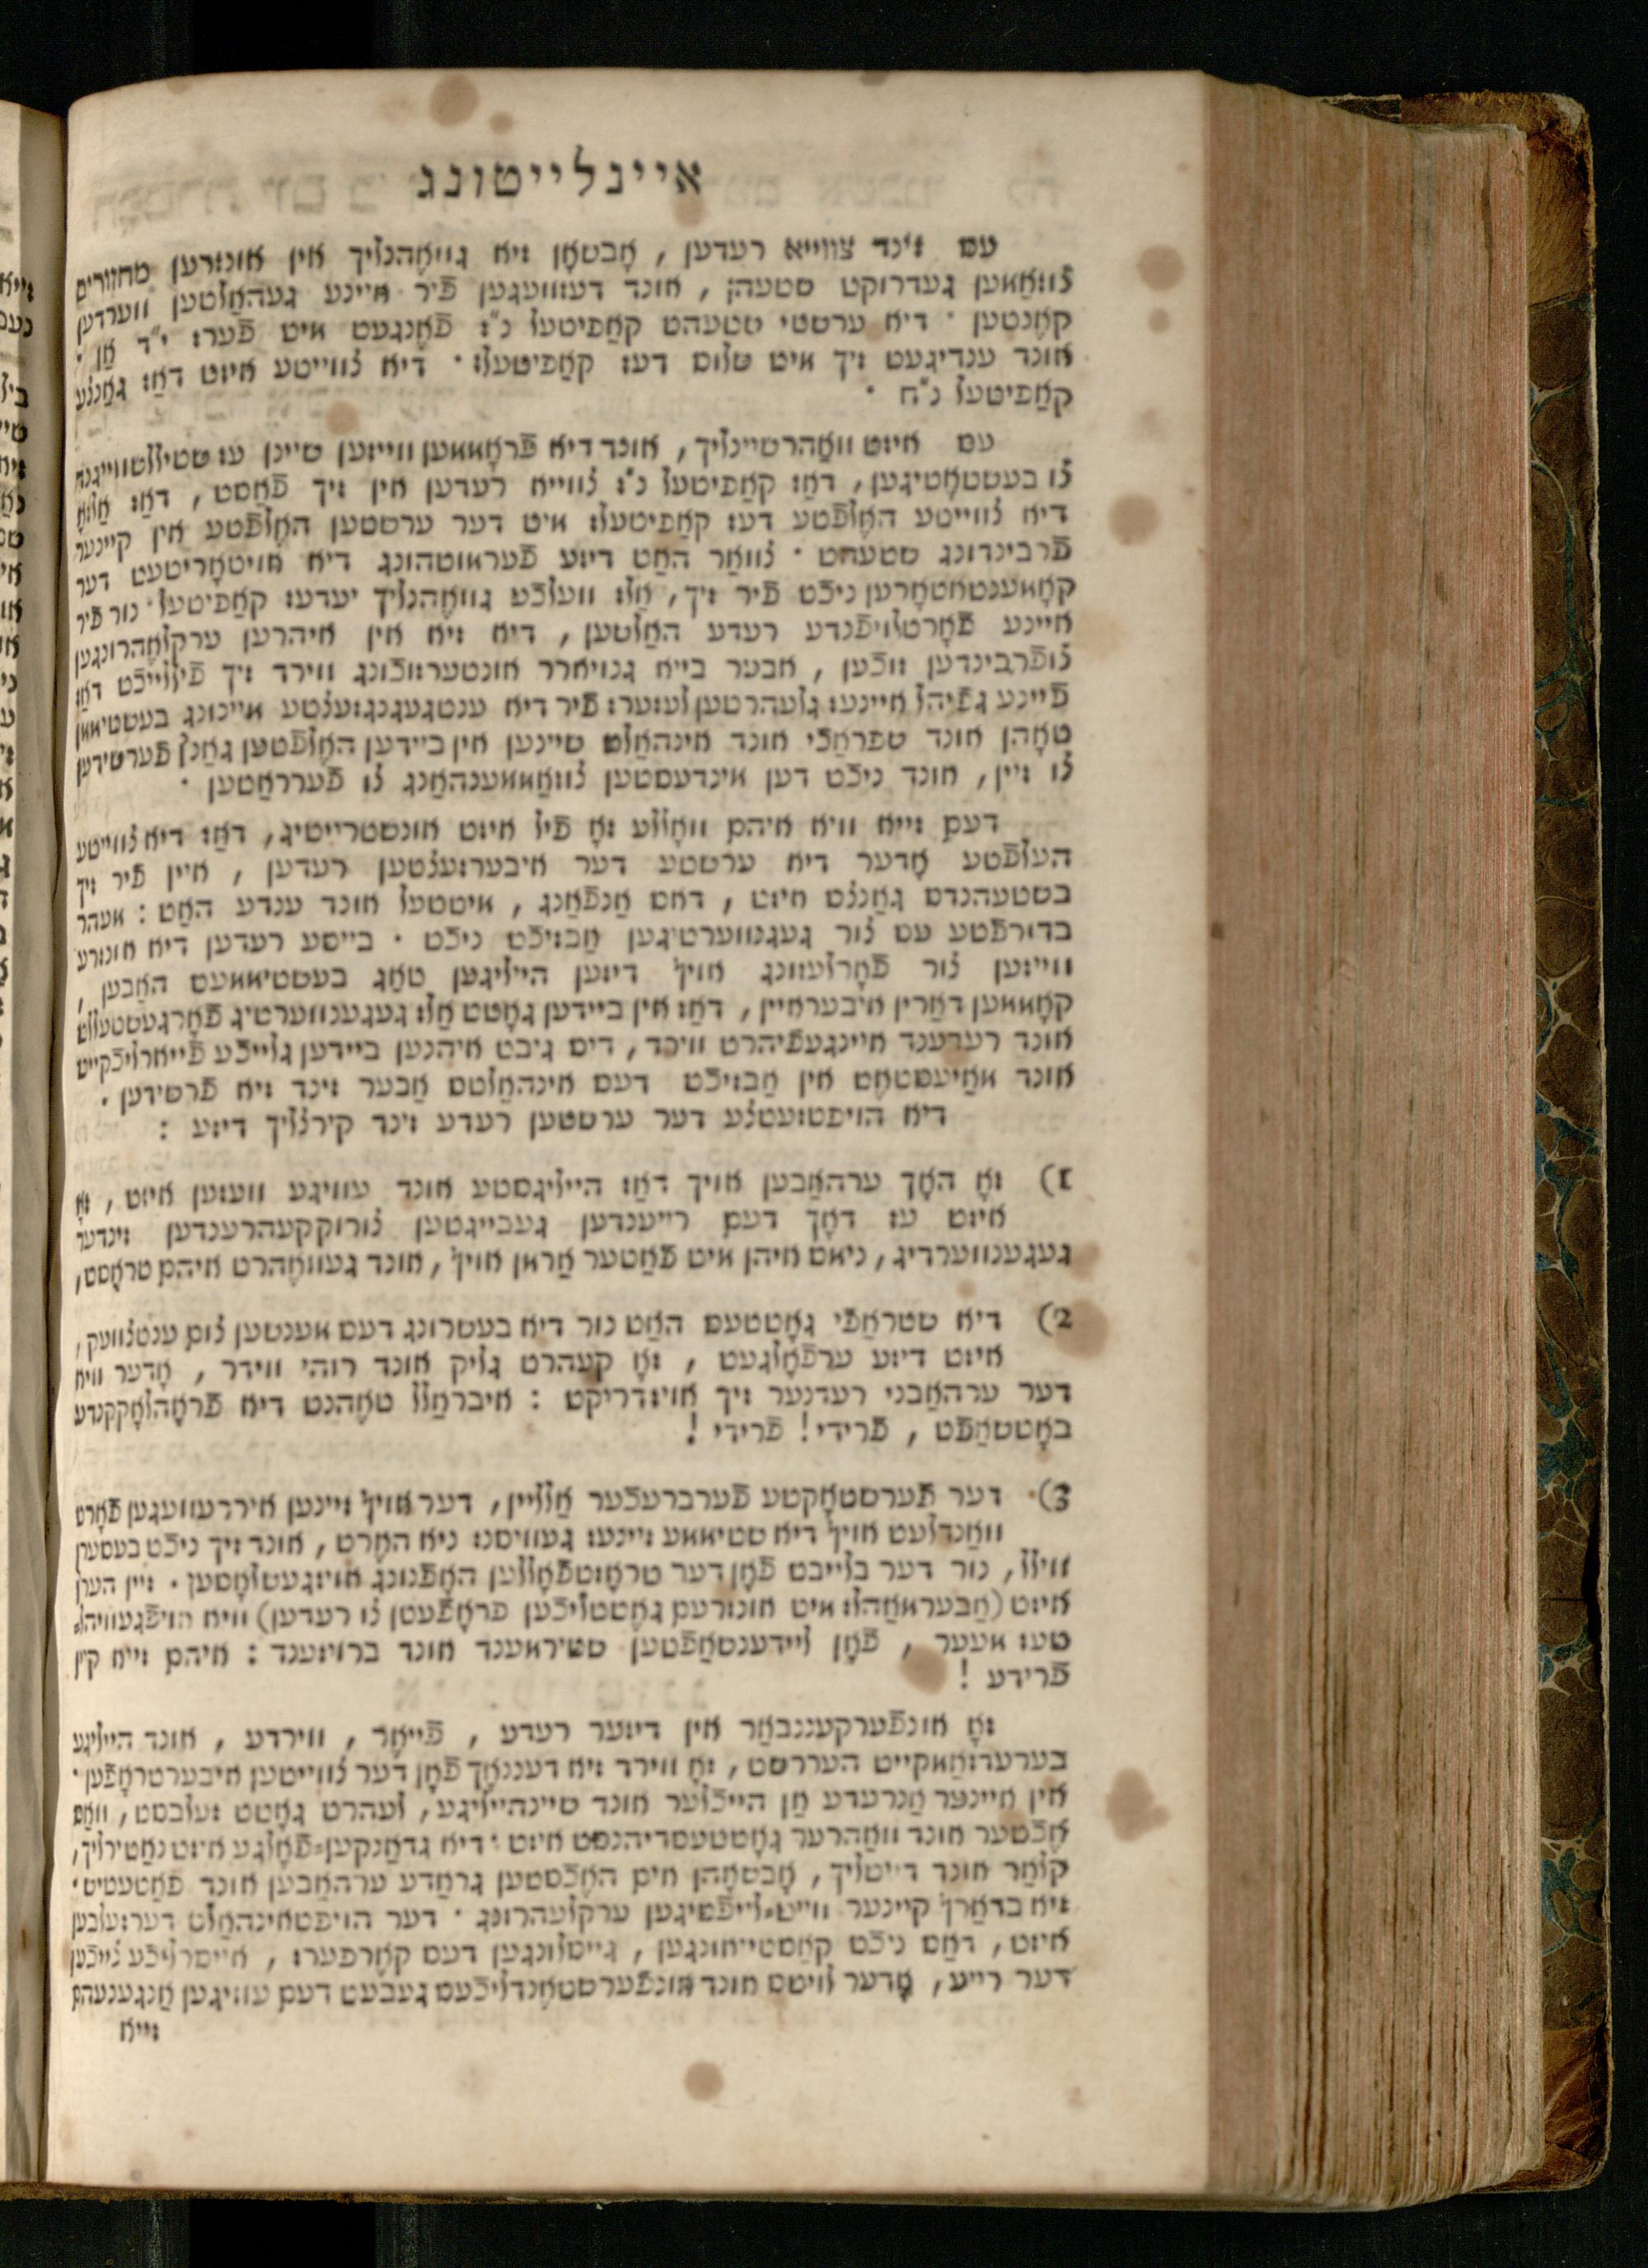 איינלייטונג
עס זינד צווייא רעדען, אָבשאָן זיא גוויאֶהנליך אין אונזרען מחזורים
צוזאַמען געדרוקט שטעהן, אונד דעזוועגען פֿיר איינע געהאַלטען ווערדען
קאֶנטען. דיא ערשטי שטעהט קאַפיטעל נ"ז פֿאֶנגעט מיט פֿערז י"ד אָן.
אונד ענדיגעט זיך מיט שלוס דעז קאַפיטעלז. דיא צווייטע איזט דאַז גאַנצע
קאַפיטעל נ"ח.
עס איזט וואַהרשיינליך, אונד דיא פֿראָממען ווייזען שיינן עז שטיללשווייגנד
צו בעשטאֶטיגען, דאַז קאַפיטעל נ"ז צווייא רעדען אין זיך פֿאַסט, דאַז אַלזאָ
דיא צווייטע האֶלפֿטע דעז קאַפיטעלז מיט דער ערשטען האֶלפֿטע אין קיינער
פֿרבינדונג שטעהט. צוואַר האַט דיזע פֿערמוטהונג דיא אויטאָריטעט דער
קאָמענטאַטאָרען ניכֿט פֿיר זיך, אַלז וועלכֿע גוואֶהנליך יעדעז קאַפיטעל נור פֿיר
איינע פֿאָרטלויפֿנדע רעדע האַלטען, דיא זיא אין איהרען ערקלאֶהרונגען
צופֿרבינדען זוכֿען, אבער בייא גנויארר אונטערזוכֿונג ווירד זיך פֿיללייכֿט דאַז
פֿיינע גפֿיהל איינעז גלעהרטען לעזערז פֿיר דיא ענטגעגנגזעצטע מיינונג בעשטיממן
טאָהן אונד שפראַכֿי אונד אינהאַלט שיינען אין ביידען האֶלפֿטען גאַנץ פֿערשידען
צו זיין, אונד ניכֿט דען מינדעסטען צוזאַממענהאַנג צו פֿערראַטען.
דעם זייא וויא איהם וואָללע זאָ פֿיל איזט אונשטרייטיג, דאַז דיא צווייטע
העלפֿטע אָדער דיא ערשטע דער איבערזעצטען רעדען, איין פֿיר זיך
בשטעהנדס גאַנצס איזט, דאס אַנפֿאַנג, מיטטעל אונד ענדע האַט: מעהר
בדורפֿטע עס צור געגנווערטיגען אַבזיכֿט ניכֿט. בייטע רעדען דיא אונזרע
ווייזען צור פֿאָרלעזונג אויף דיזען הייליגען טאַג בעשטיממעט האַבען,
קאָממען דאַרין איבעראיין, דאַז אין ביידען גאָטט אַלז געגענווערטיג פֿאָרגעשטעלט
אונד רעדענד איינגעפֿיהרט ווירד, דיס גיבט איהנען ביידען גלייכֿע פֿייארליכֿקייט
אונד מאַיעסטאֶט אין אַבזיכֿט דעס אינהאַלטס אַבער זינד זיא פֿרשידען.
דיא הויפטזעטצע דער ערשטען רעדע זינד קירצליך דיזע:
1) זאָ האָך ערהאַבען אויך דאַז הייליגסטע אונד עוויגע וועזען איזט, זאָ
איזט עז דאָך דעם רייענדען געבייגטען צורוקקעהרענדען זינדער
געגענווערדיג, נימט איהן מיט פֿאַטער אַרמן אויף, אונד געוואֶהרט איהם טראָסט,
2) דיא שטראַפֿי גאָטטעס האַט נור דיא בעשרונג דעס מענשען צום ענטצוועק,
איזט דיזע ערפֿאָלגעט, זאָ קעהרט גליק אונד רוהי ווידר, אָדער וויא
דער ערהאַבני רעדנער זיך אויזדריקט: איבראַלל טאֶהנט דיא פֿראָהלאָקקנדע
באָטשאַפֿט, פֿרידי! פֿרידי!
3) דער פֿערסטאָקטע פֿערברעכֿער אַלליין, דער אויף זיינען איררעוועגען פֿאָרט
וואַנדלעט אויף דיא שטיממע זיינעז געוויסנז ניא האֶרט, אונד זיך ניכֿט בעסערן
ווילל, נור דער בלייבט פֿאָן דער טראָזטפֿאָללען האָפֿנונג אויזגעשלאָסען. זיין הערץ
איזט (אַבעראמאַהלז מיט אונזרעם גאֶטטליכֿען פראָפֿעטן צו רעדען) וויא אויפֿגעוויהל-
טעז מעער, פֿאָן ליידענשאַפֿטען שטירמענד אונד ברויזענד: איהם זייא קיין
פֿרידע!
זאָ אונפֿערקעננבאַר אין דיזער רעדע, פֿייאָר, ווירדע, אונד הייליגע
בערעדזאַמקייט העררשט, זאָ ווירד זיא דעננאָך פֿאָן דער צווייטען איבערטראָפֿען.
אין איינער אַנרעדע אַן הייכֿלער אונד שיינהייליגע, לעהרט גאָטט זעלבסט, וואַס
אֶכֿטער אונד וואַהרער גאָטטעסדיהנסט איזט. דיא גדאַנקען-פֿאָלגע איזט נאַטירליך,
קלאַר אונד דייטליך, אָבשאָהן אים האֶכֿסטען גראַדע ערהאַבען אונד פֿאַטעטיש.
זיא בדאַרף קיינער ווייט-לייפֿטיגען ערקלעהרונג. דער הויפטאינהאַלט דערזעלבען
איזט, דאַס ניכֿט קאַסטייאונגען, גייסלונגען דעס קאֶרפערז, אייסרליכֿע צייכֿען
דער רייע, אָדער לויטס אונד אונפֿערסטאֶנדליכֿעס געבעט דעם עוויגען אַנגענעהם
זייא